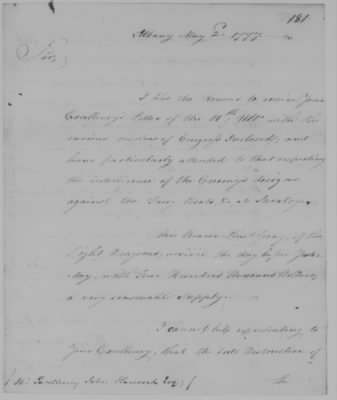 181
Albany May 2d. 1777.
Sir,
I had the Honor to receive Your
Excellency's Letter of the 18th Ulto. with the
various resolves of Congress Inclosed, and
have particularly attended to that respecting
the intelligence of the Enemy's designs
against the Ferry Boats &c. at Saratoga.
The Bearer Lieut. Gray, of the
Light Dragoons, arrived the day before Yester-
day, with Four Hundred Thousand Dollars,
a very seasonable Supply.
I cannot help representing to
Your Excellency, that the late Resolution of
His Excellency John Hancock Esqr.
the